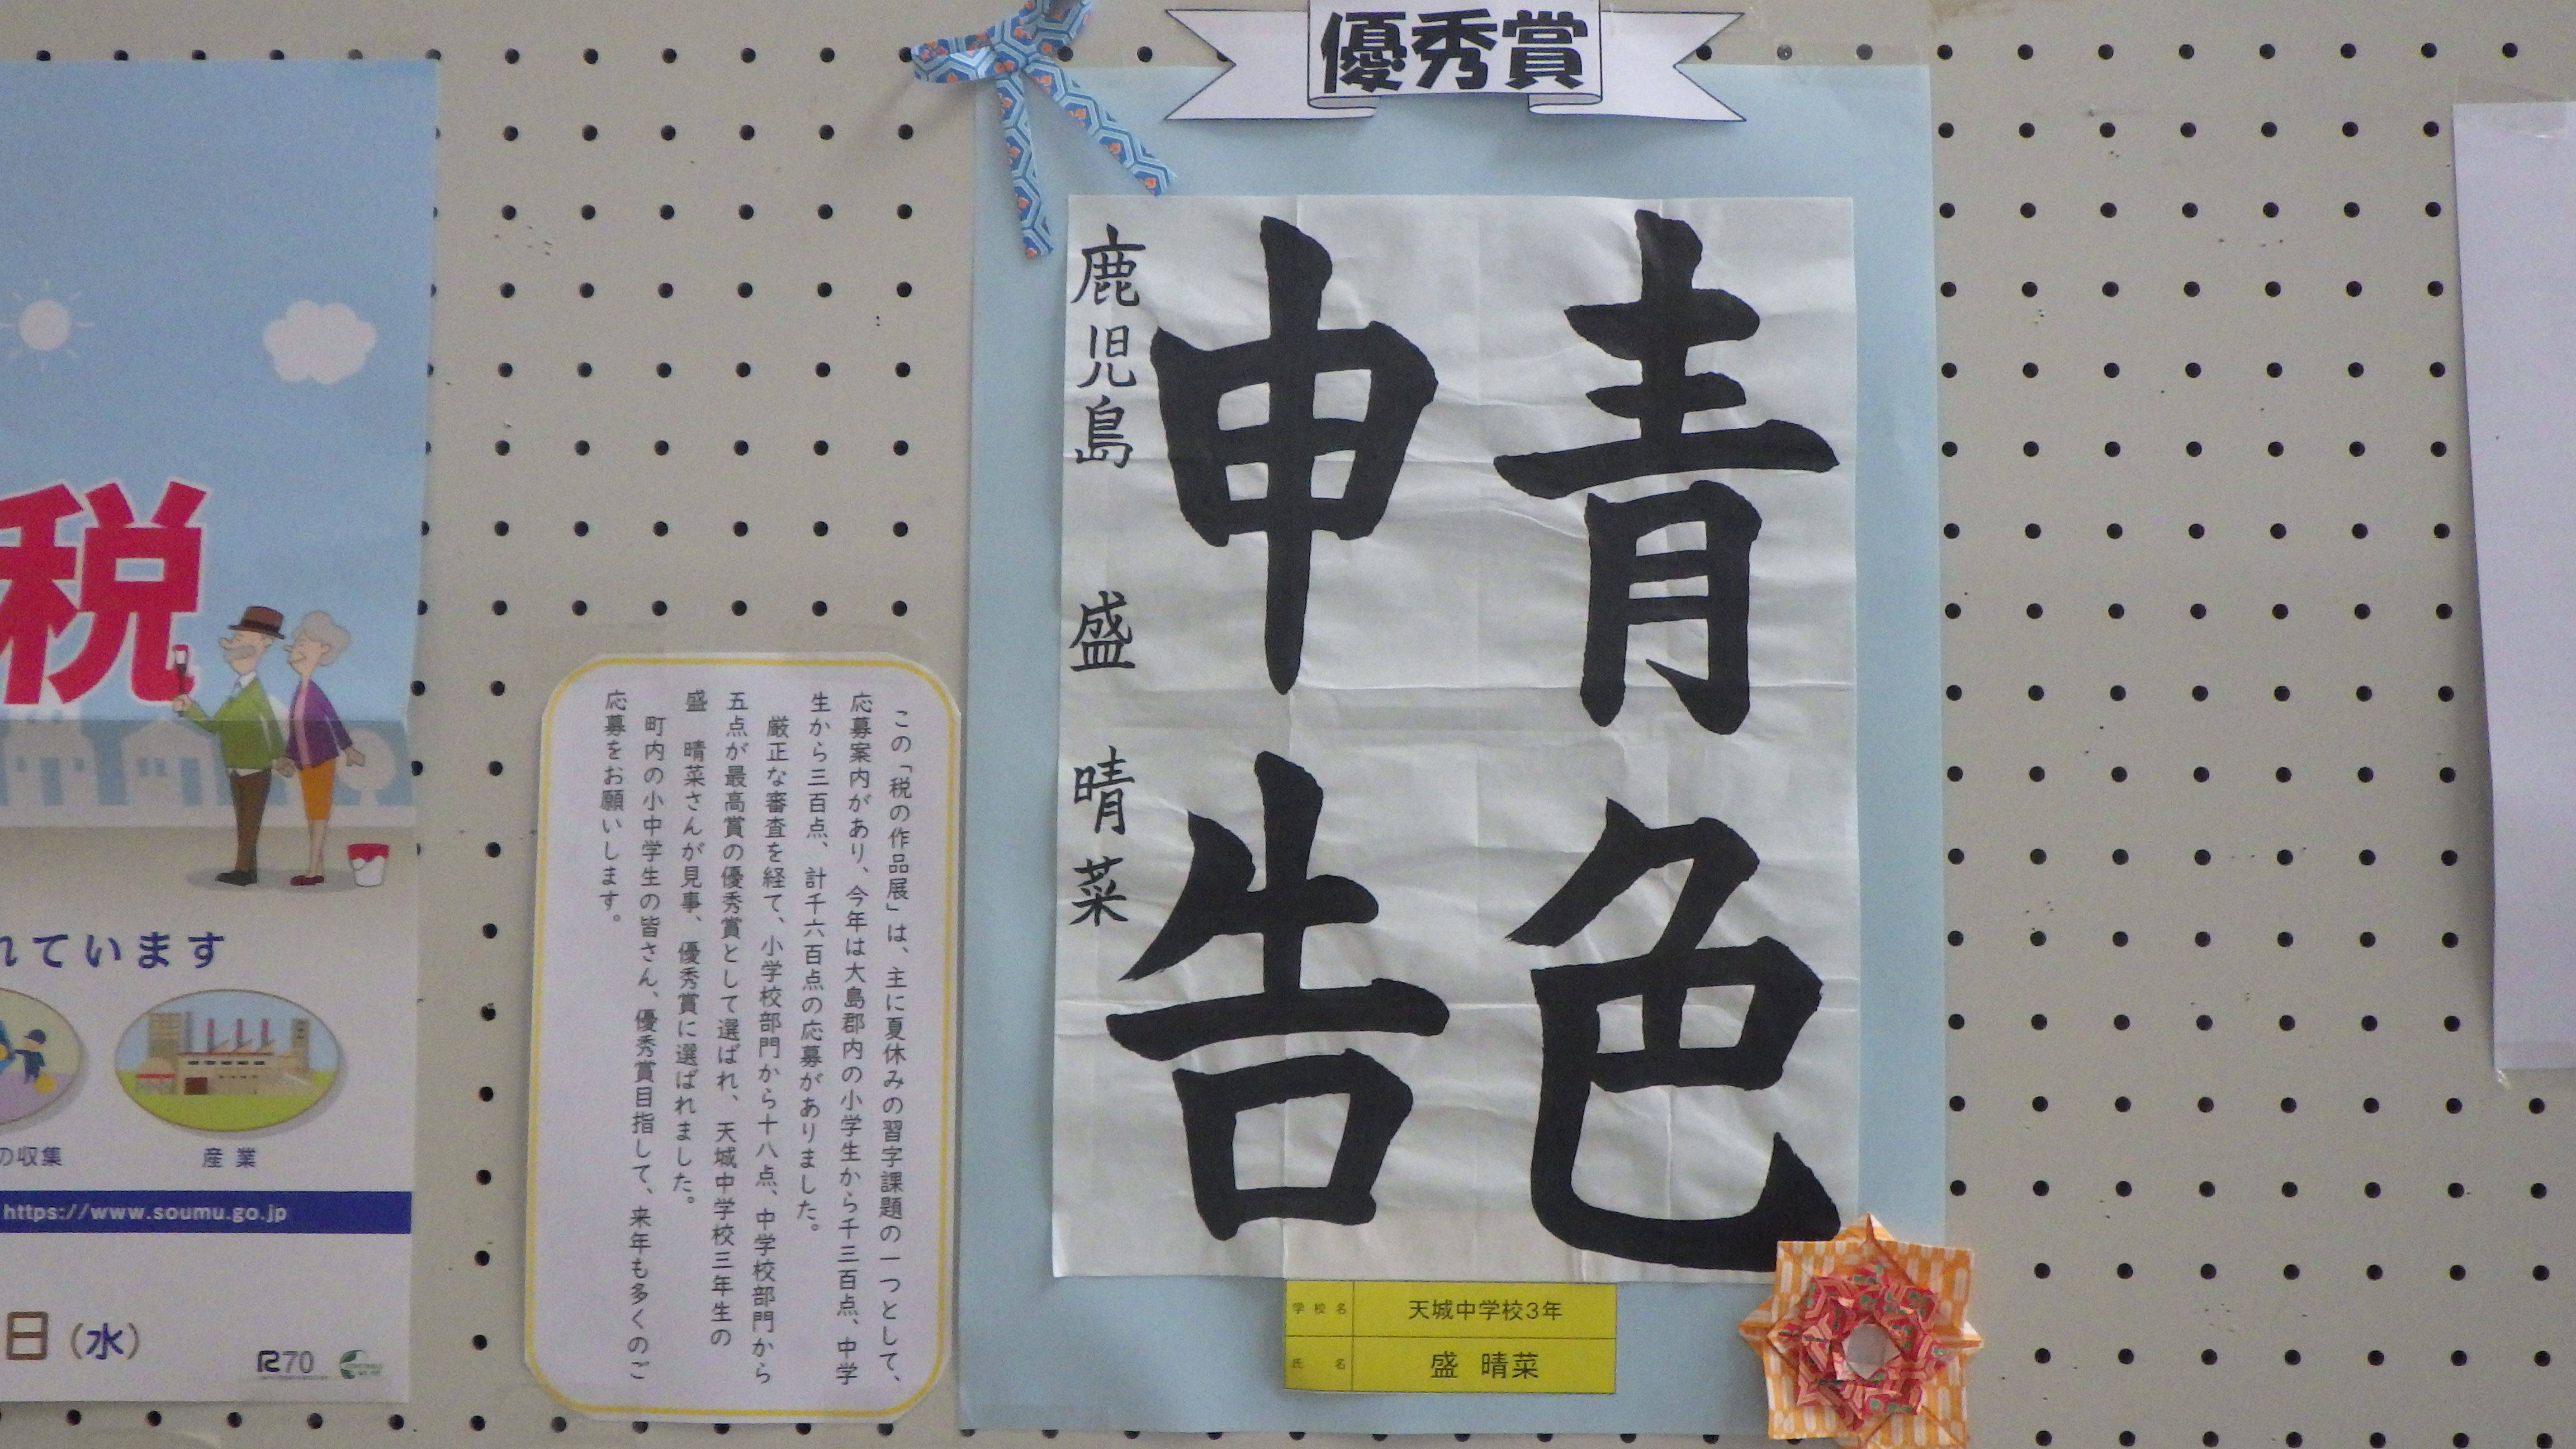 優秀賞
青色
申告
鹿児島 盛 晴菜
学校名 天城中学校3年
氏 名 盛 晴菜
この「税の作品展」は、主に夏休みの習字課題の一つとして、
応募案内があり、今年は大島郡内の小学生から千三百点、中学
生から三百点、計千六百点の応募がありました。
厳正な審査を経て、小学校部門から十八点、中学校部門から
五点が最高賞の優秀賞として選ばれ、天城中学校三年生の
盛 晴菜さんが見事、優秀賞に選ばれました。
町内の小中学生の皆さん、優秀賞目指して、来年も多くのご
応募をお願いします。
税
れています
の収集
産業
https://www.soumu.go.jp
日(水)
R70